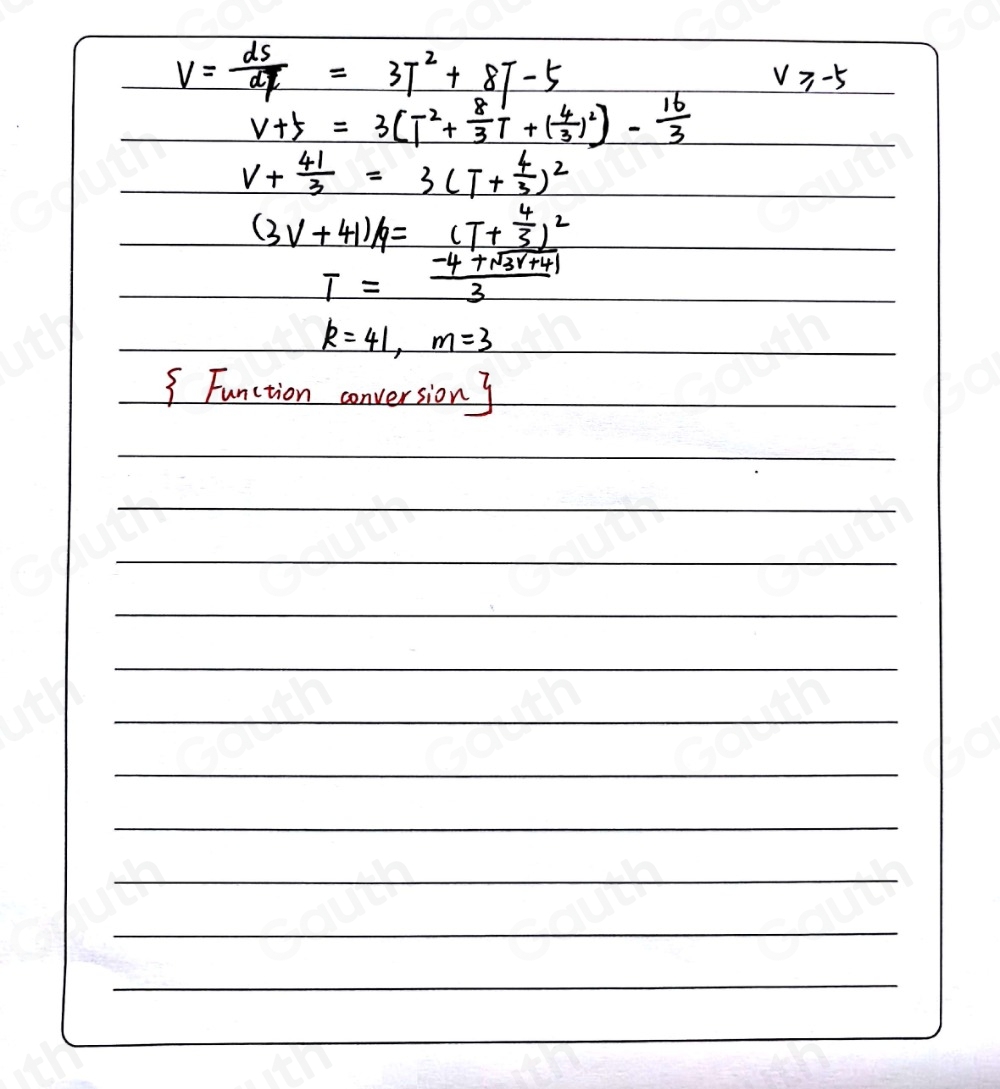 V = ds/dT = 3T² + 8T - 5 V ⩾ -5
V+5 = 3[T² + 8/3 T + (4/3)²] - 16/3
V + 41/3 = 3(T + 4/3)²
(3V + 41)/9 = (T + 4/3)²
T = (-4 + √3V+41)/3
k = 41, m = 3
{ Function conversion }